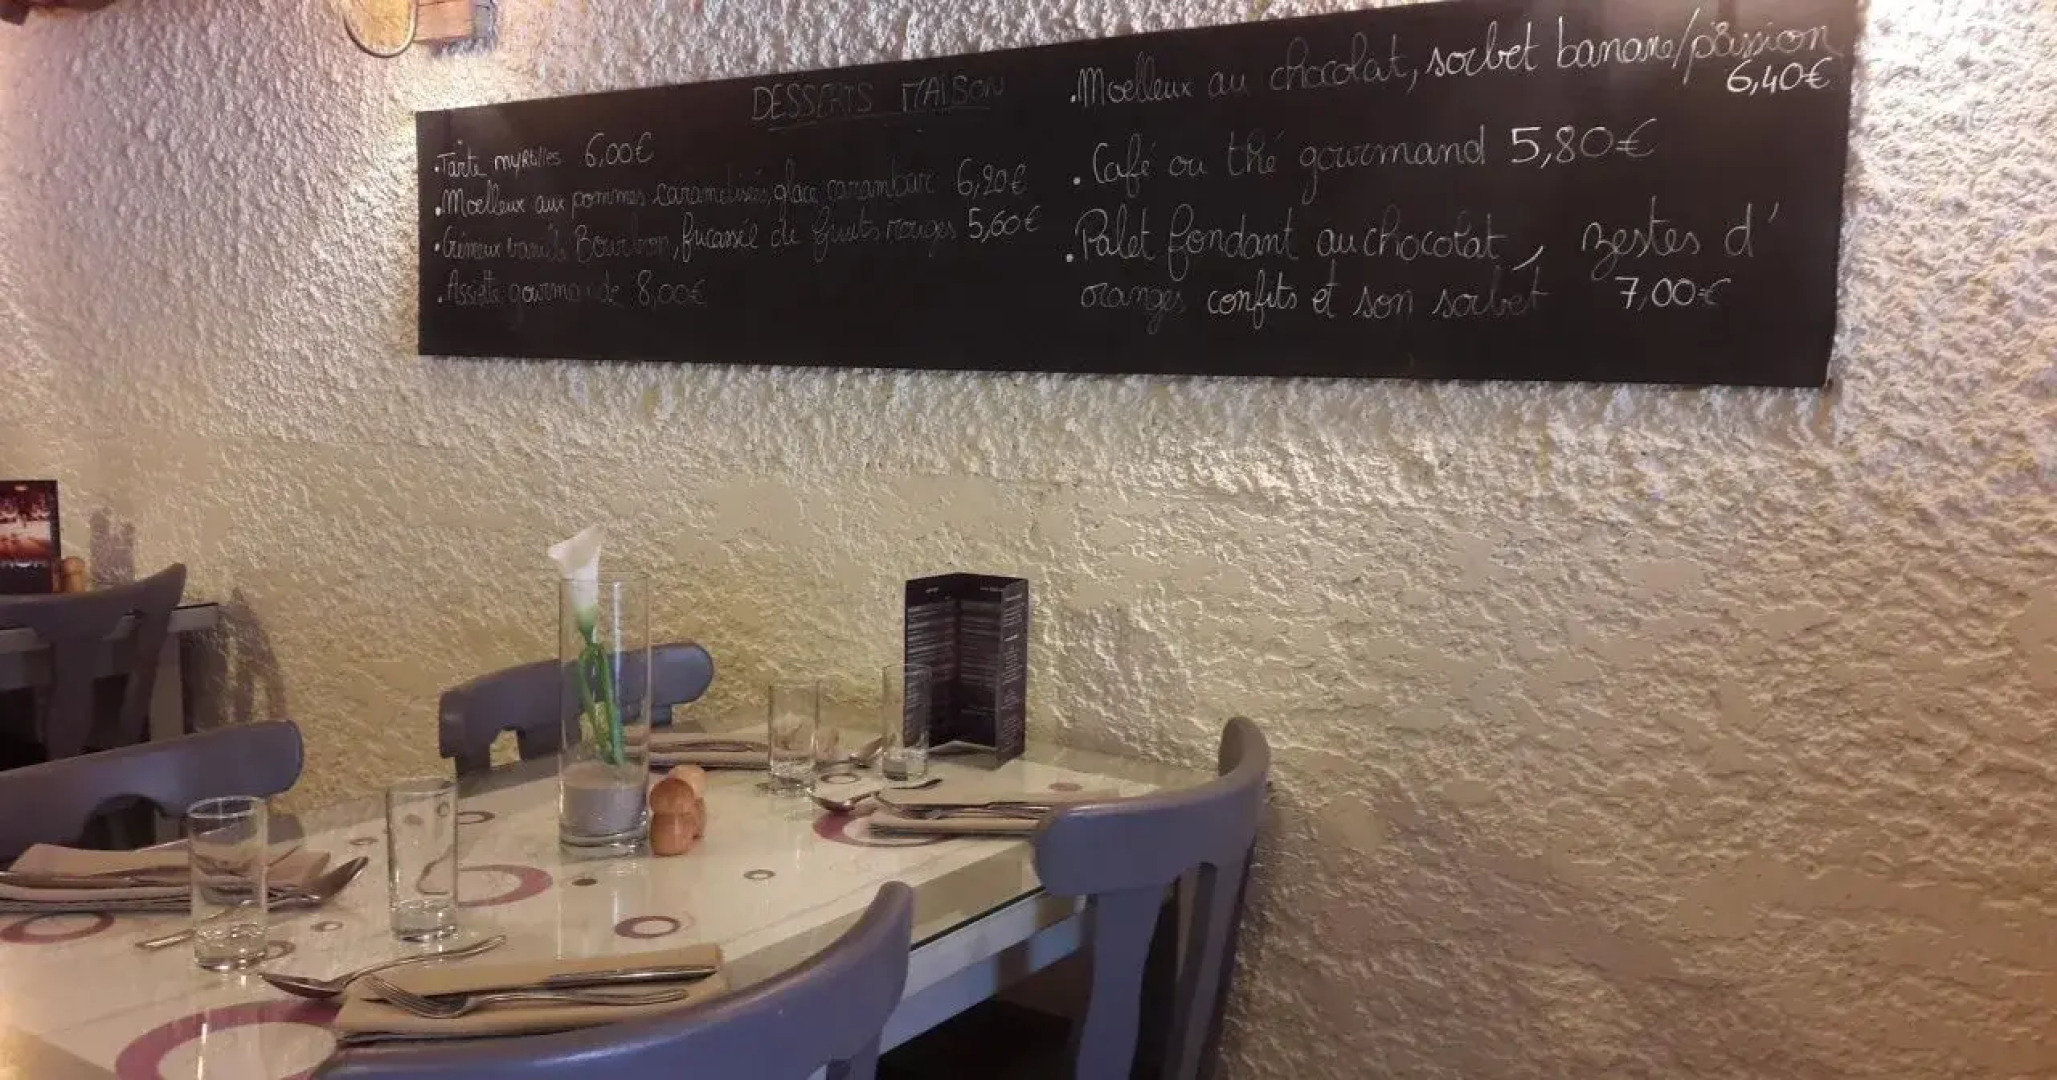 DESSERTS MAISON
.Tarte myrtilles 6,00€
.Moelleux aux pommes caramélisées, glace carambar 6,20€
.Crémeux vanille Bourbon, fricassée de fruits rouges 5,60€
.Assiette gourmande 8,00€
.Moelleux au chocolat, sorbet banane/passion
6,40€
.Café ou thé gourmand 5,80€
.Palet fondant au chocolat, zestes d'
oranges confits et son sorbet 7,00€